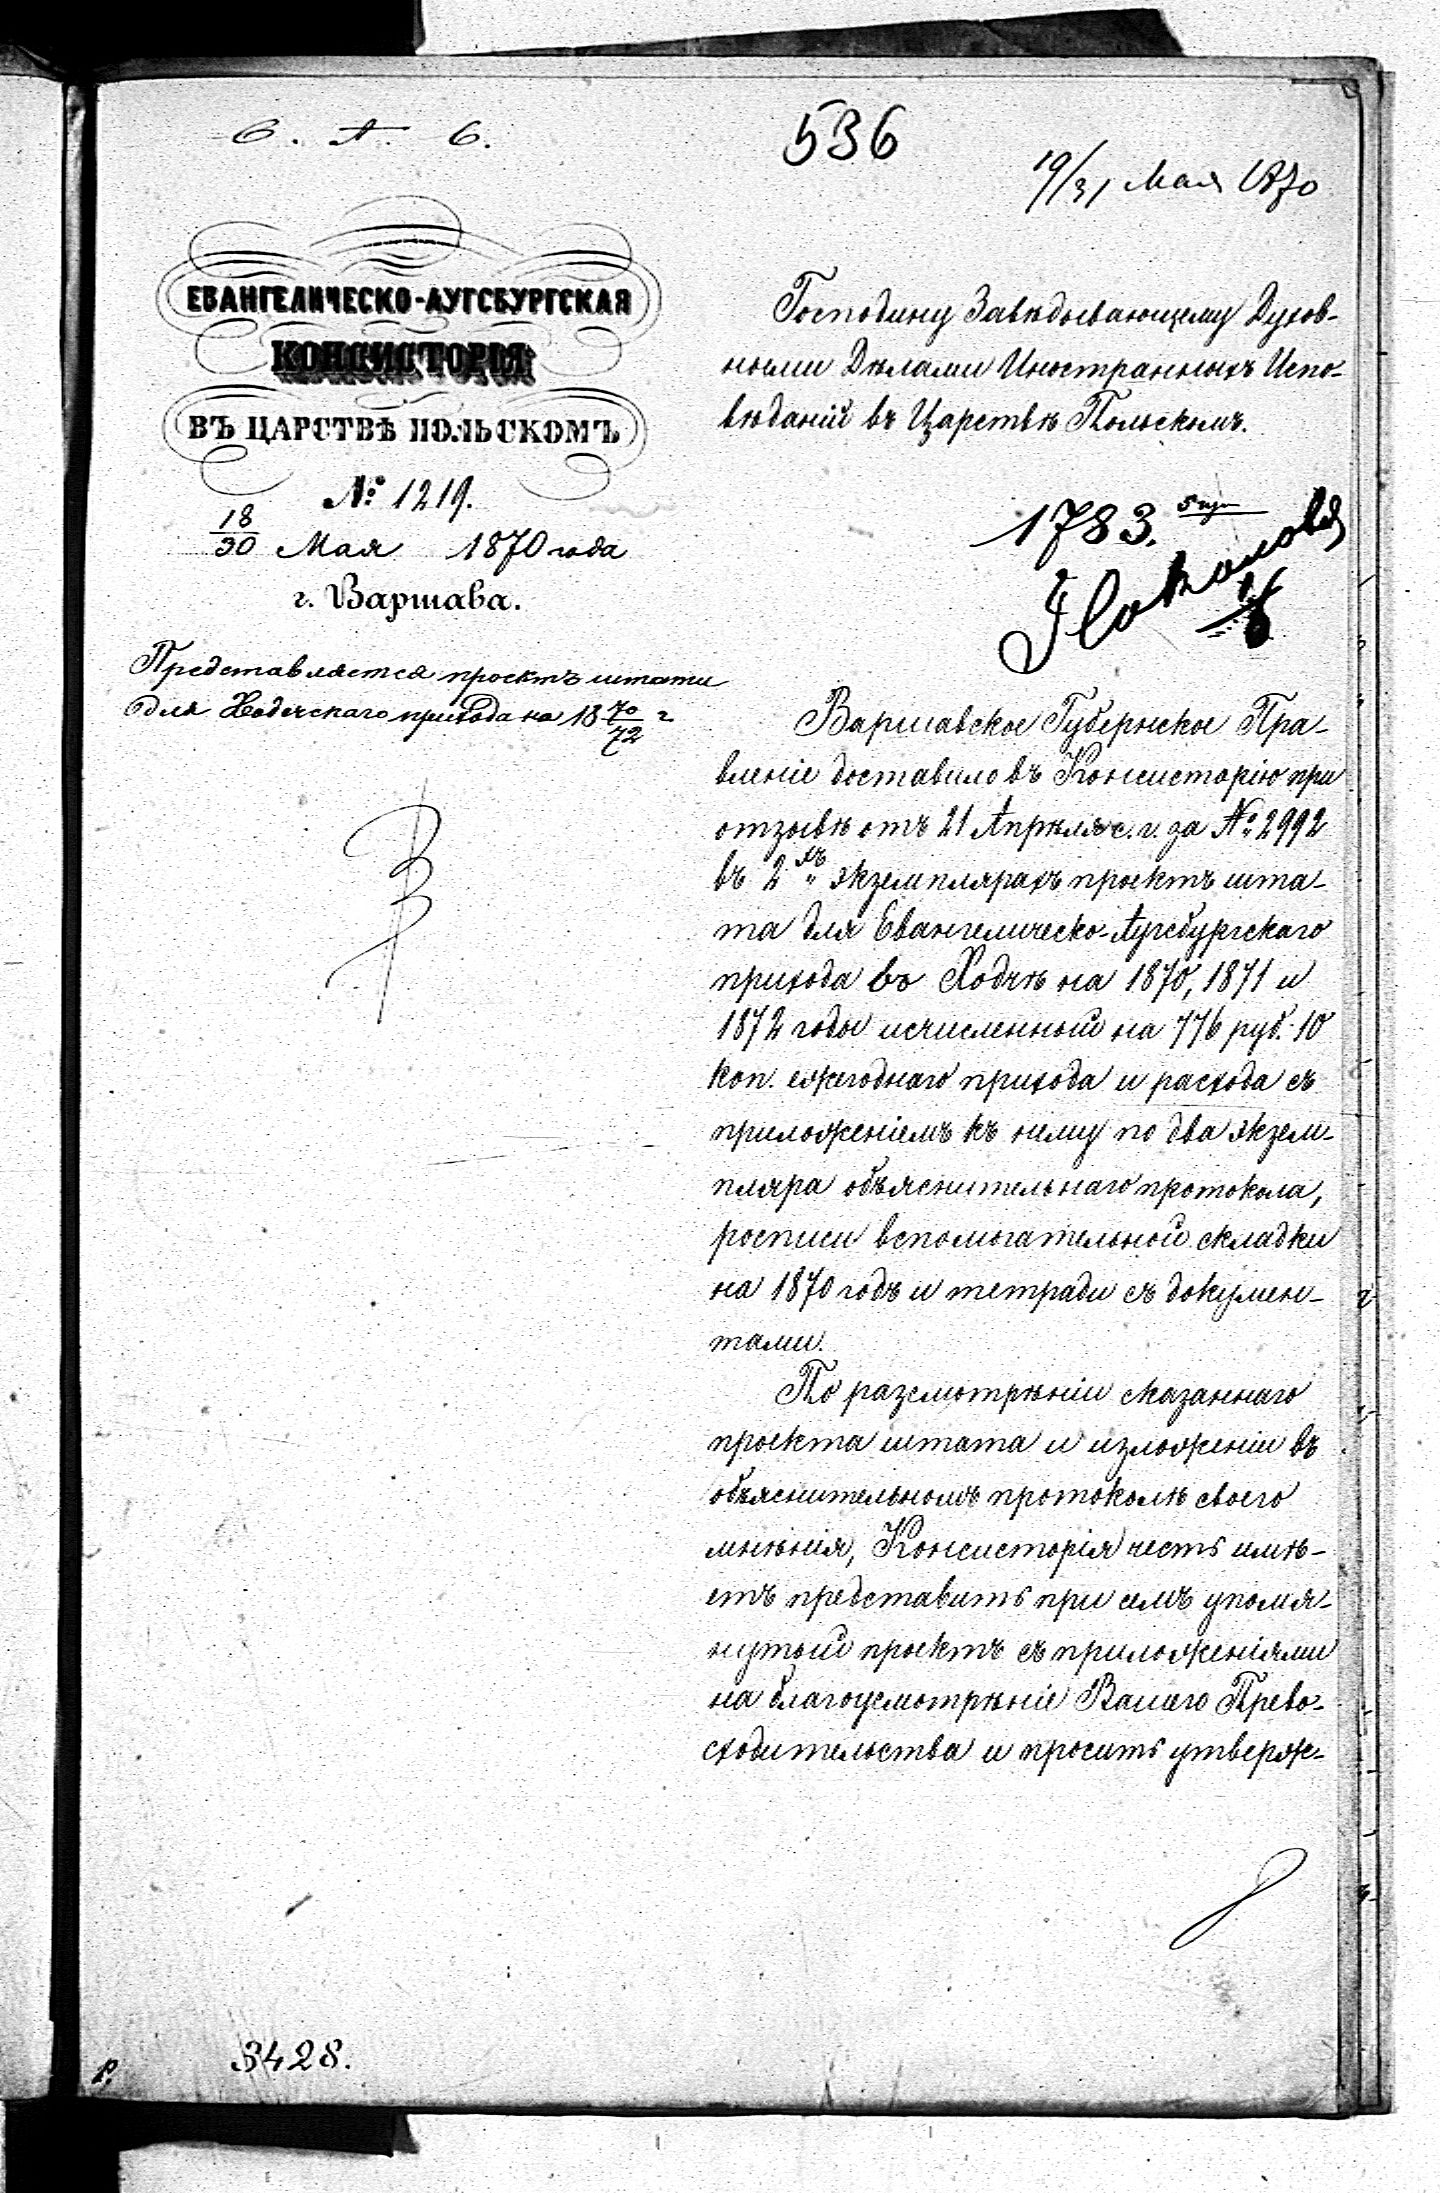 С. А. С.
536
19/31 Мая 1870
ЕВАНГЕЛИЧЕСКО-АУГСБУРГСКАЯ
КОНСИСТОРІЯ
ВЪ ЦАРСТВѢ ПОЛЬСКОМЪ
№ 1219.
18/30 Мая 1870 года
г. Варшава.
Представляется проектъ штата
для Ходечскаго прихода на 18 70/72 г
Господину Завѣдывающему Духов-
ными Дѣлами Иностранныхъ Испо-
вѣданій въ Царствѣ Польскомъ.
1783.
Варшавское Губернское Пра-
вленіе доставило въ Консисторію при
отзывѣ отъ 21 Апрѣля с. г. за № 2992
въ 2хъ экземплярахъ проектъ шта-
та для Евангелическо-Аугсбургскаго
прихода въ Ходчѣ на 1870, 1871 и
1872 годы исчисленный на 776 руб. 10
коп. ежегоднаго прихода и расхода съ
приложеніемъ къ нему по два экзем-
пляра объяснительнаго протокола,
росписи вспомогательной складки
на 1870 годъ и тетради съ докумен-
тами.
По разсмотрѣніи сказаннаго
проекта штата и изложеніи въ
объяснительномъ протоколѣ своего
мнѣнія, Консисторія честь имѣ-
етъ представить при семъ упомя-
нутый проектъ съ приложеніями
на благоусмотрѣніе Вашего Прево-
сходительства и просить утверж-
3428.